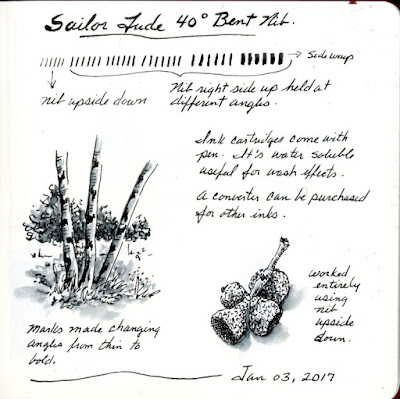 Sailor Fude 40° Bent Nib.
Sideways
nib upside down
Nib right side up held at
different angles.
Ink cartridges come with
pen. It's water soluble
useful for wash effects.
A converter can be purchased
for other inks.
worked
entirely
using
nib
upside
down.
Marks made changing
angles from thin to
bold.
Jan 03, 2017